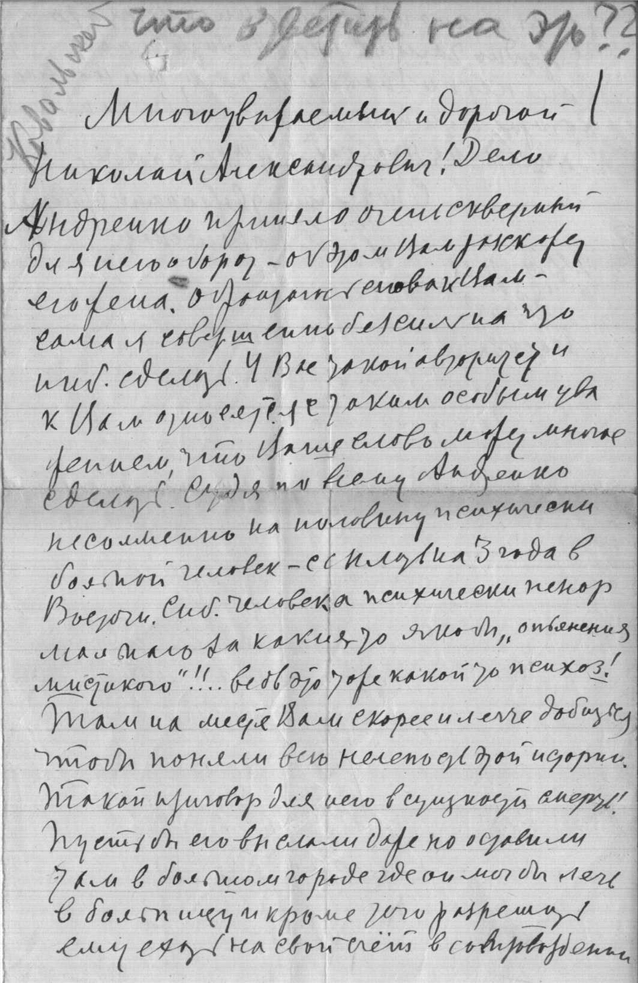 что ответить на это??
Многоуважаемый и дорогой
Николай Александрович! Дело
Андреенко приняло очень скверный
для него оборот – об этом Вам расскажет
его жена. Обращаюсь снова к Вам –
сама я совершенно бессильна что
ниб. сделать. У Вас такой авторитет и
к Вам относятся с таким особым ува
жением, что Ваше слово может многое
сделать. Судя по всему Андреенко
несомненно на половину психически
больной человек – ссылать на 3 года в
Восточн. Сиб. человека психически ненор
мального за какия то якобы „опьянения
мистикою"!!.. ведь это тоже какой то психоз!
Там на месте Вам скорее и легче добиться
чтобы поняли всю нелепость этой истории.
Такой приговор для него в сущности смерть!
Пусть бы его выслали даже но оставили
там в большом городе где он мог бы лечь
в больницу и кроме того разрешат
ему ехать на свой счёт в сопровождении